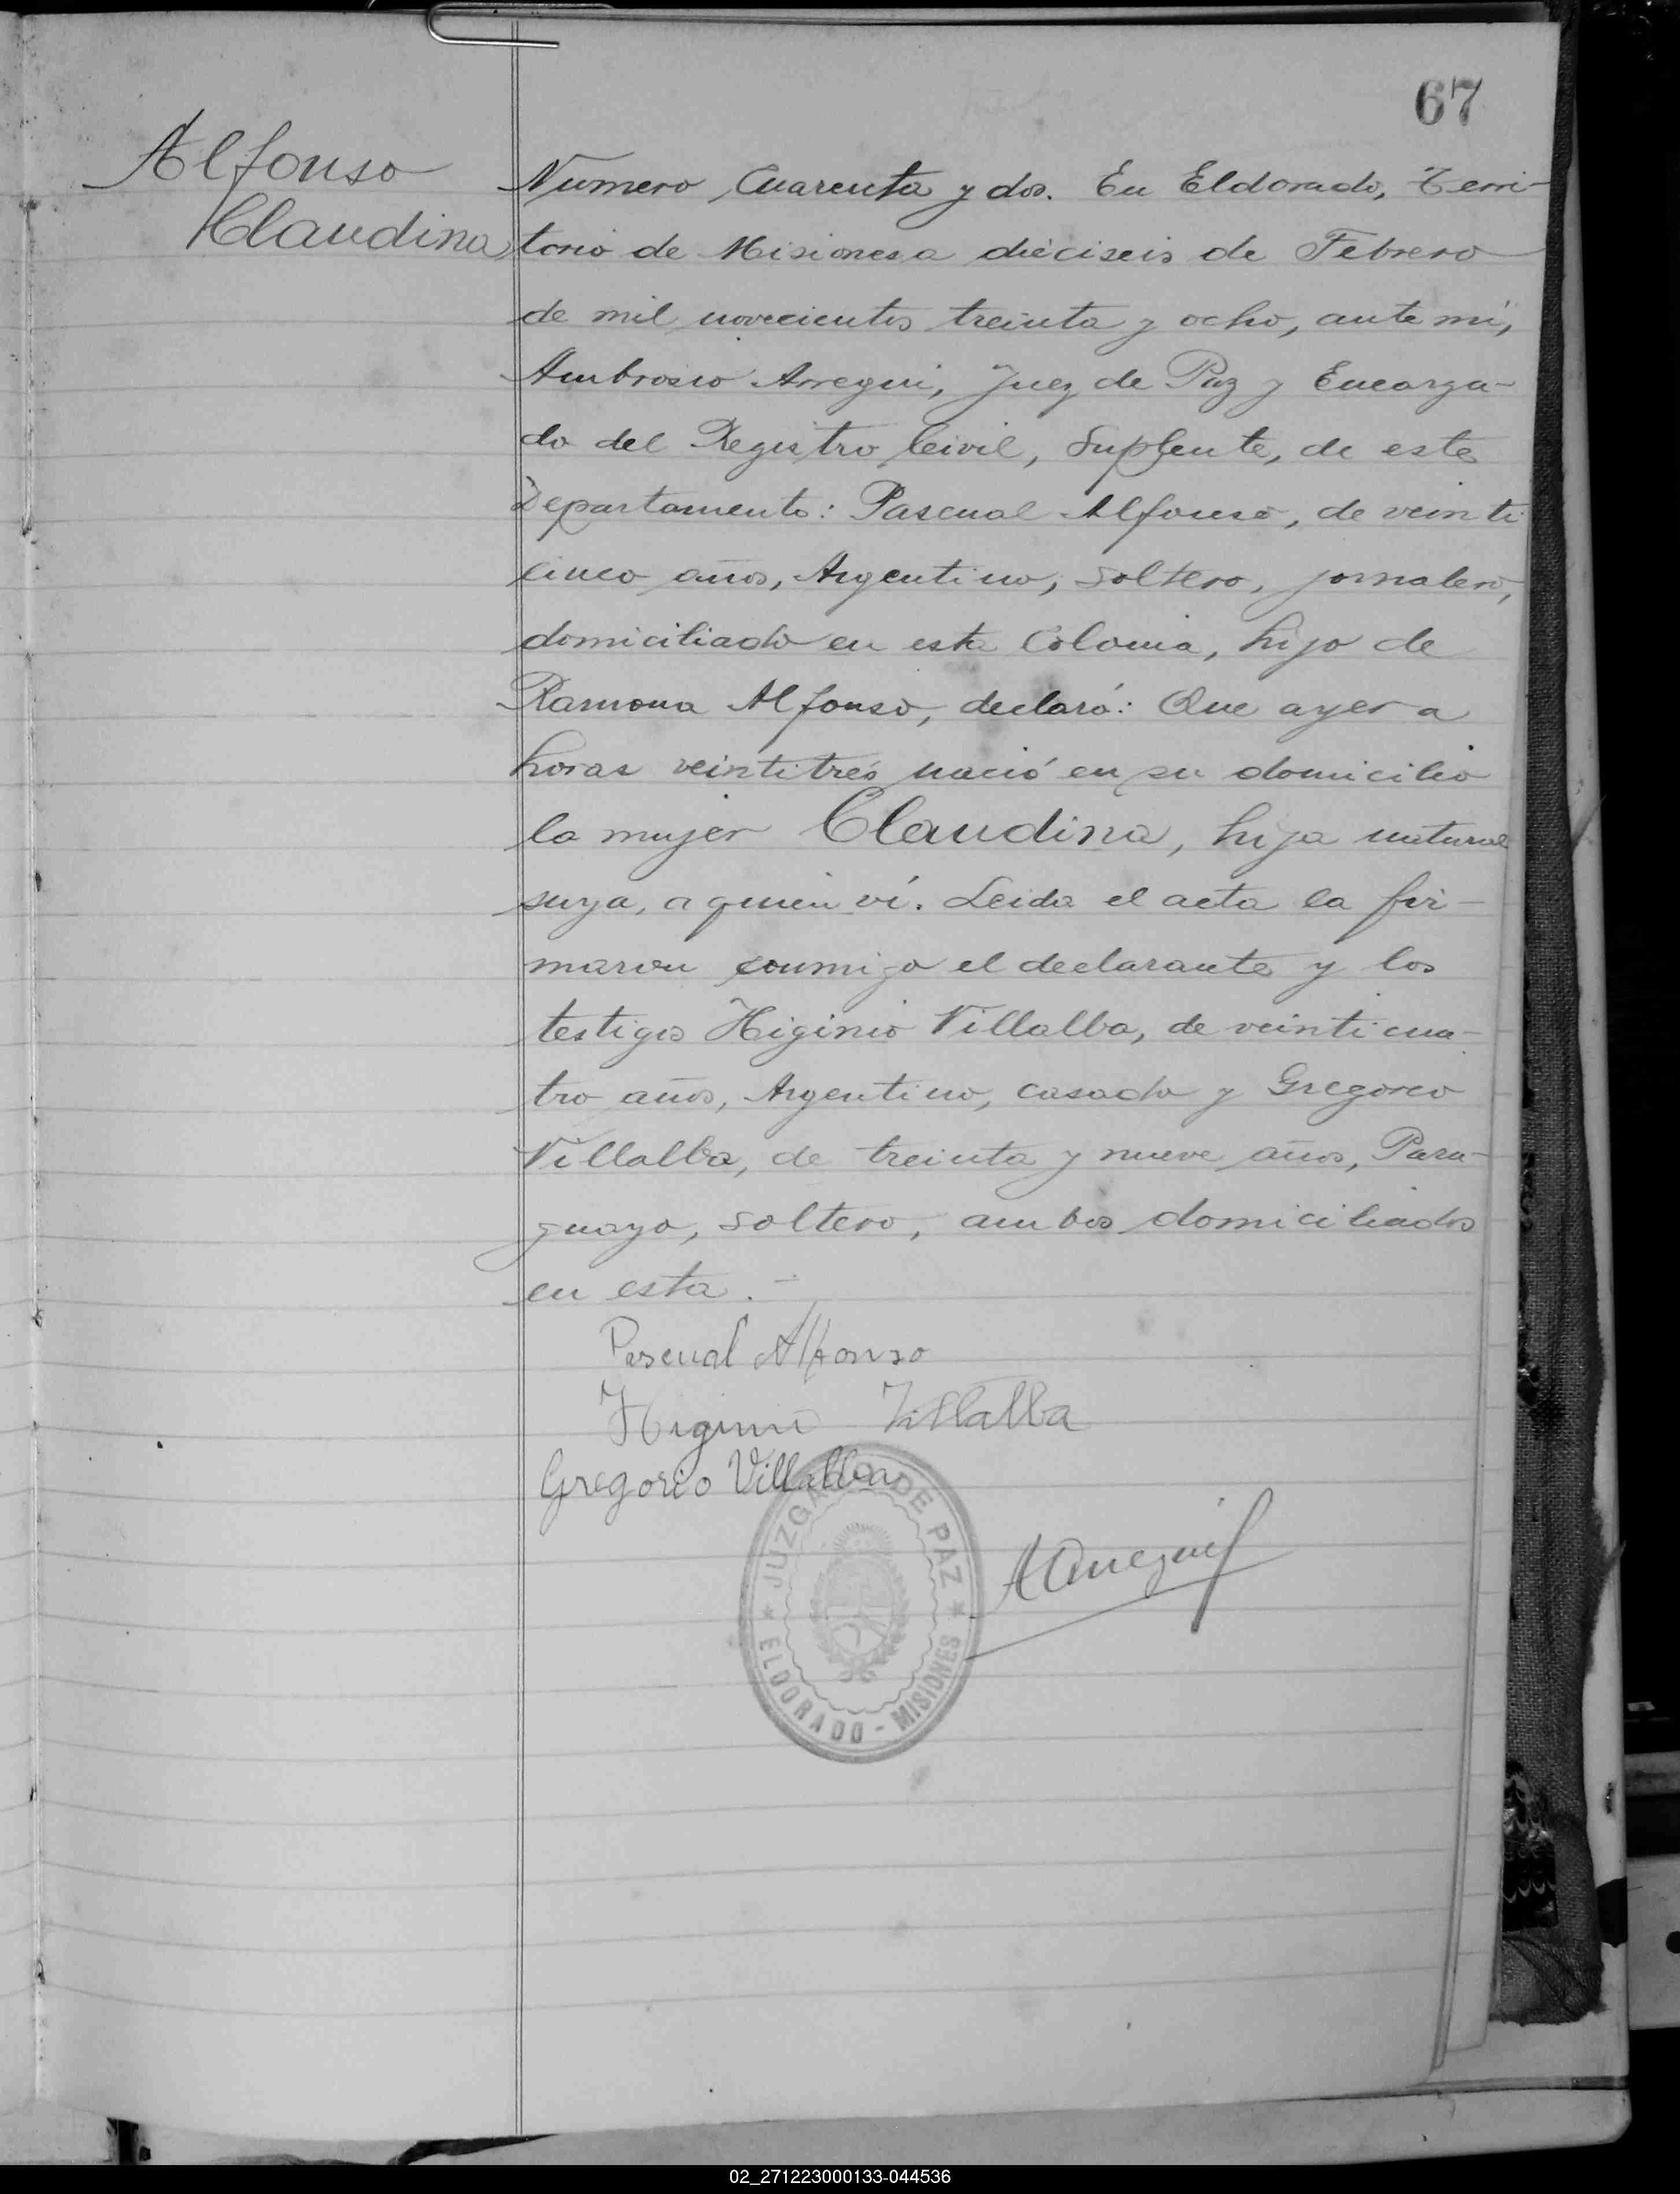 67
Alfonso
Claudina
Numero Cuarenta y dos. En Eldorado, Terri-
torio de Misiones a dieciseis de Febrero
de mil novecientos treinta y ocho, ante mí,
Ambrosio Arregui, Juez de Paz y Encarga-
do del Registro Civil, Suplente, de este
Departamento: Pascual Alfonso, de veinti
cinco años, Argentino, soltero, jornalero,
domiciliado en esta Colonia, hijo de
Ramona Alfonso, declaró: Que ayer a
horas veintitrés nació en su domicilio
la mujer Claudina, hija natural
suya, a quien ví. Leida el acta la fir-
maron conmigo el declarante y los
testigos Higinio Villalba, de veinticua-
tro años, Argentino, casado y Gregorio
Villalba, de treinta y nueve años, Para-
guayo, soltero, ambos domiciliados
en esta.-
Pascual Alfonso
Higinio Villalba
Gregorio Villalba
AArregui
JUZGADO DE PAZ
ELDORADO - MISIONES
02_271223000133-044536